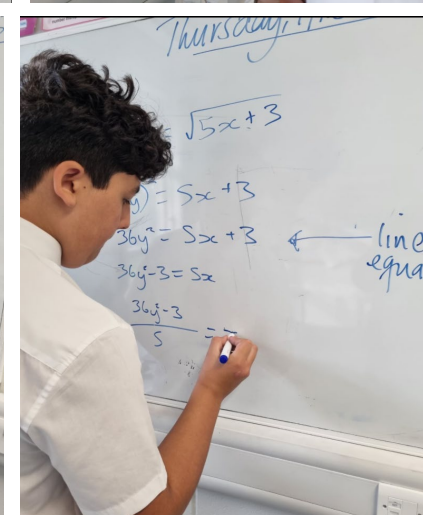 Thursday
= √5x + 3
y) = 5x + 3
36y² = 5x + 3
line
equa
36y² - 3 = 5x
36y² - 3
5
=